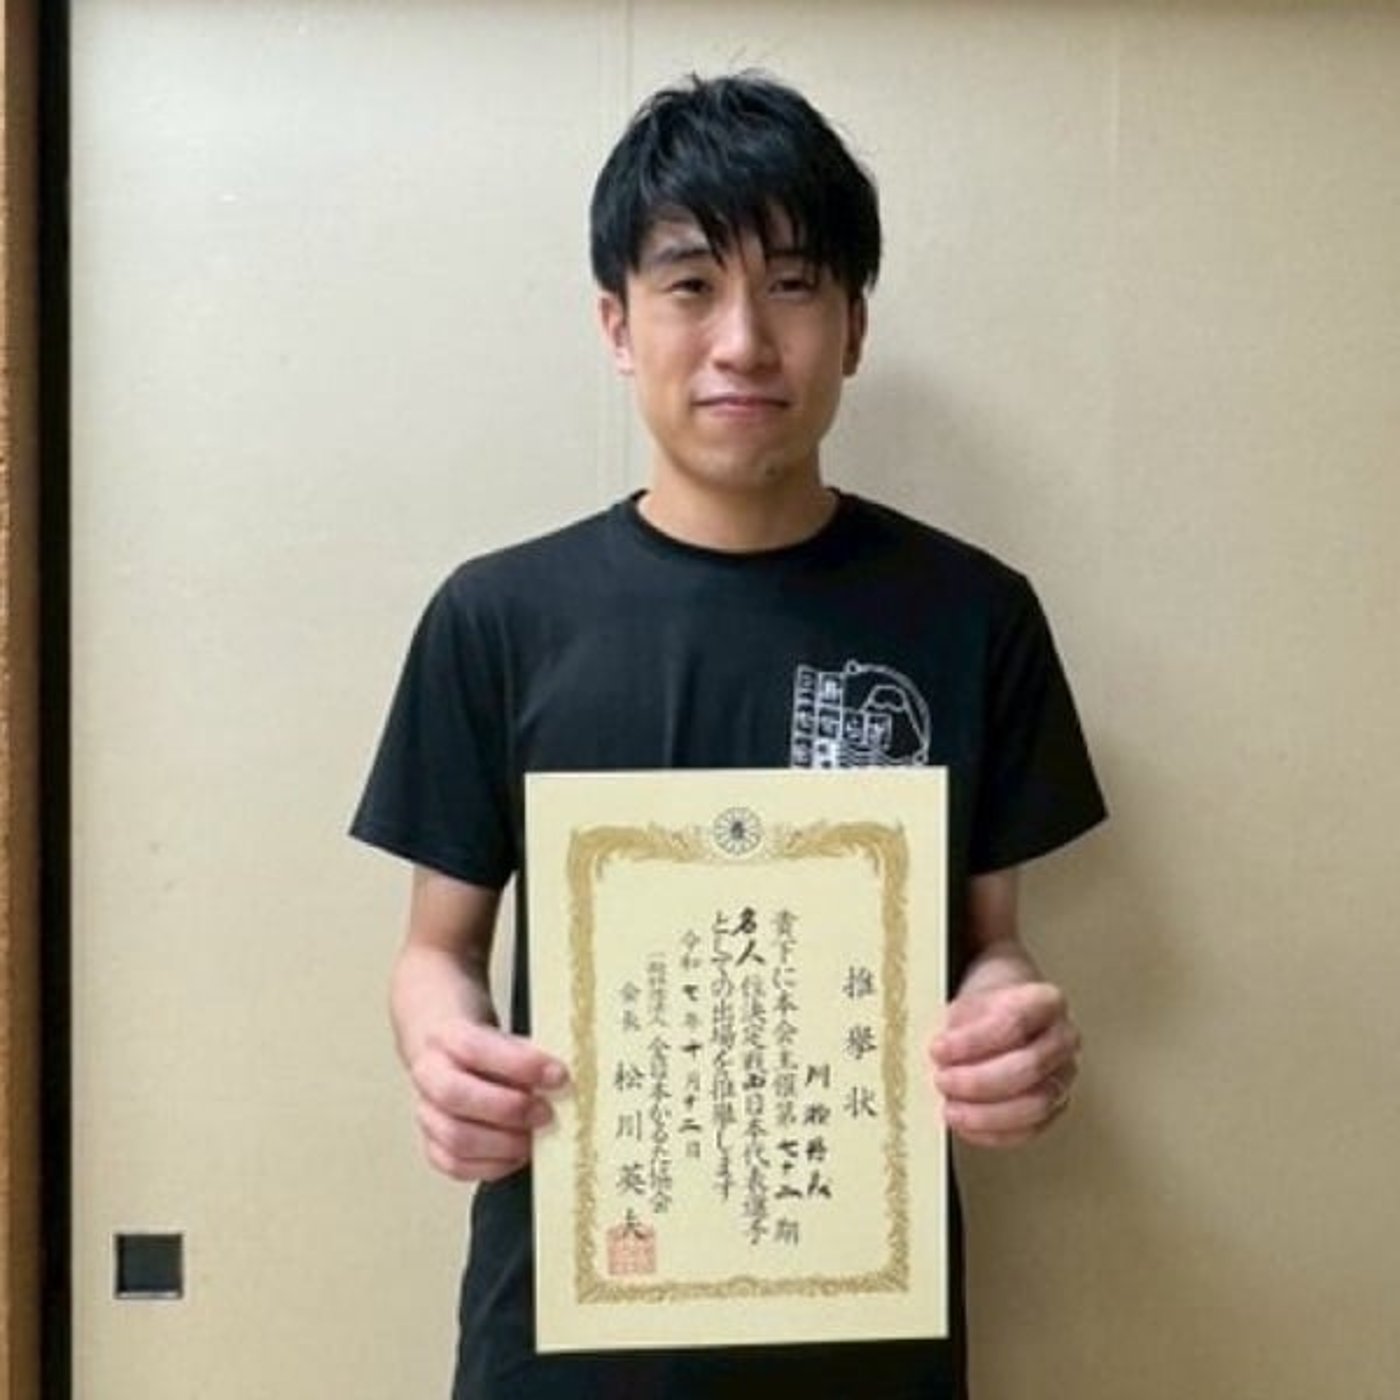 推挙状
川
貴下に本会主催第七十二期
名人位決定戦西日本代表選手
としての出場を推挙します
令和七年十月十二日
一般社団法人 全日本かるた協会
会長 松川英夫